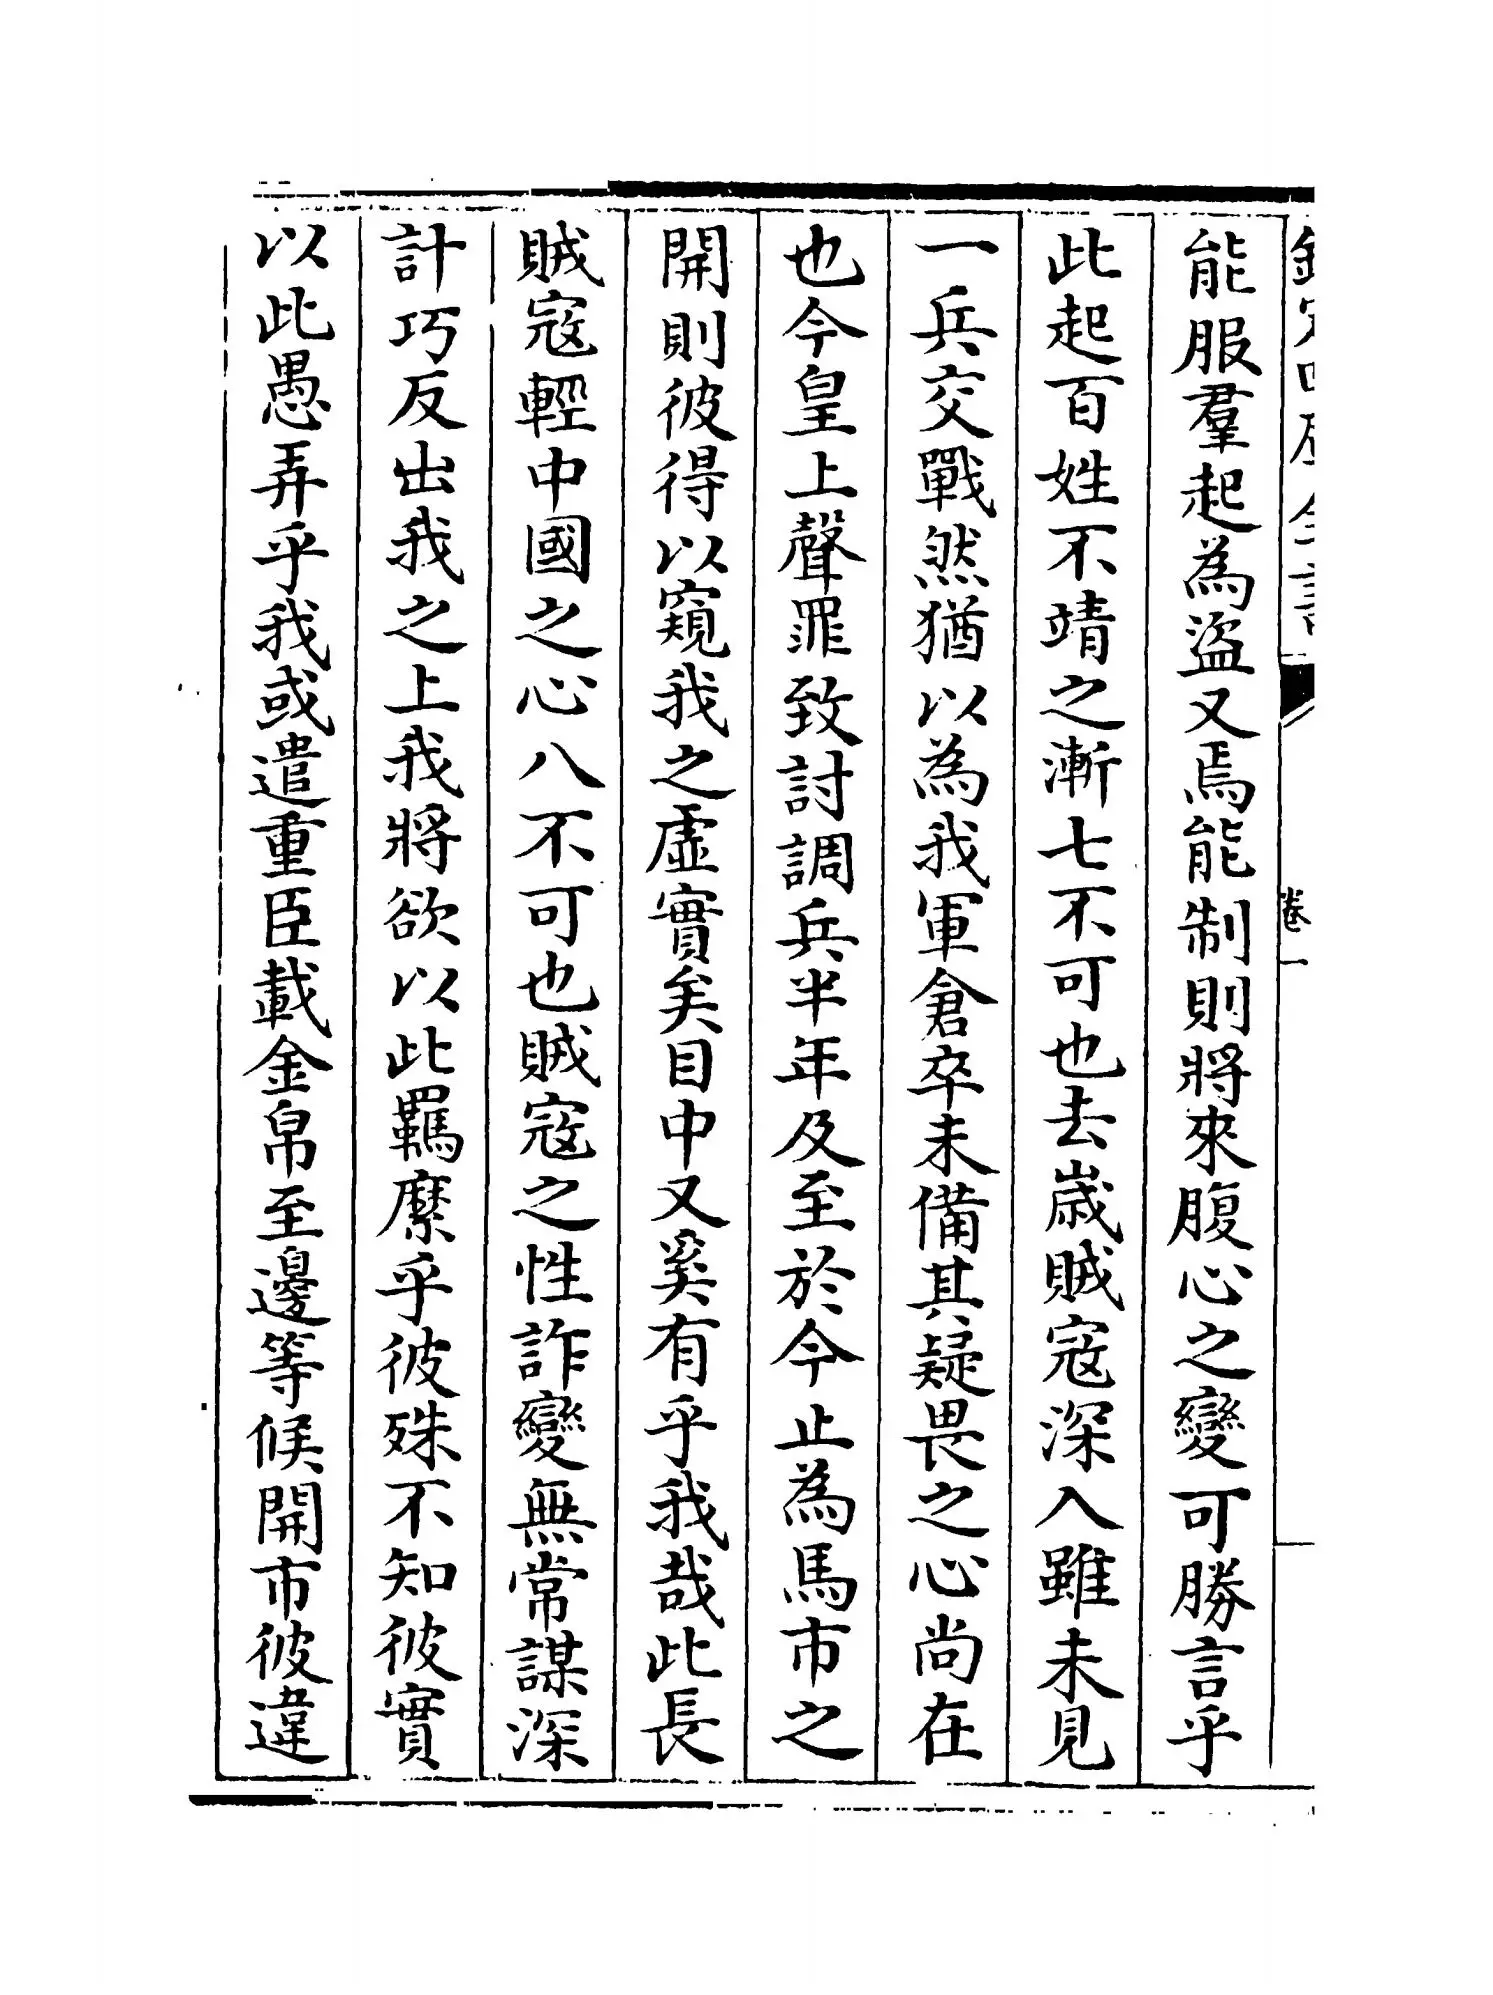 欽定四庫全書
卷一
能服羣起為盜又焉能制則將來腹心之變可勝言乎
此起百姓不靖之漸七不可也去歲賊寇深入雖未見
一兵交戰然猶以為我軍倉卒未備其疑畏之心尚在
也今皇上聲罪致討調兵半年及至於今止為馬市之
開則彼得以窺我之虛實矣目中又奚有乎我哉此長
賊寇輕中國之心八不可也賊寇之性詐變無常謀深
計巧反出我之上我將欲以此羈縻乎彼殊不知彼實
以此愚弄乎我或遣重臣載金帛至邊等候開市彼違